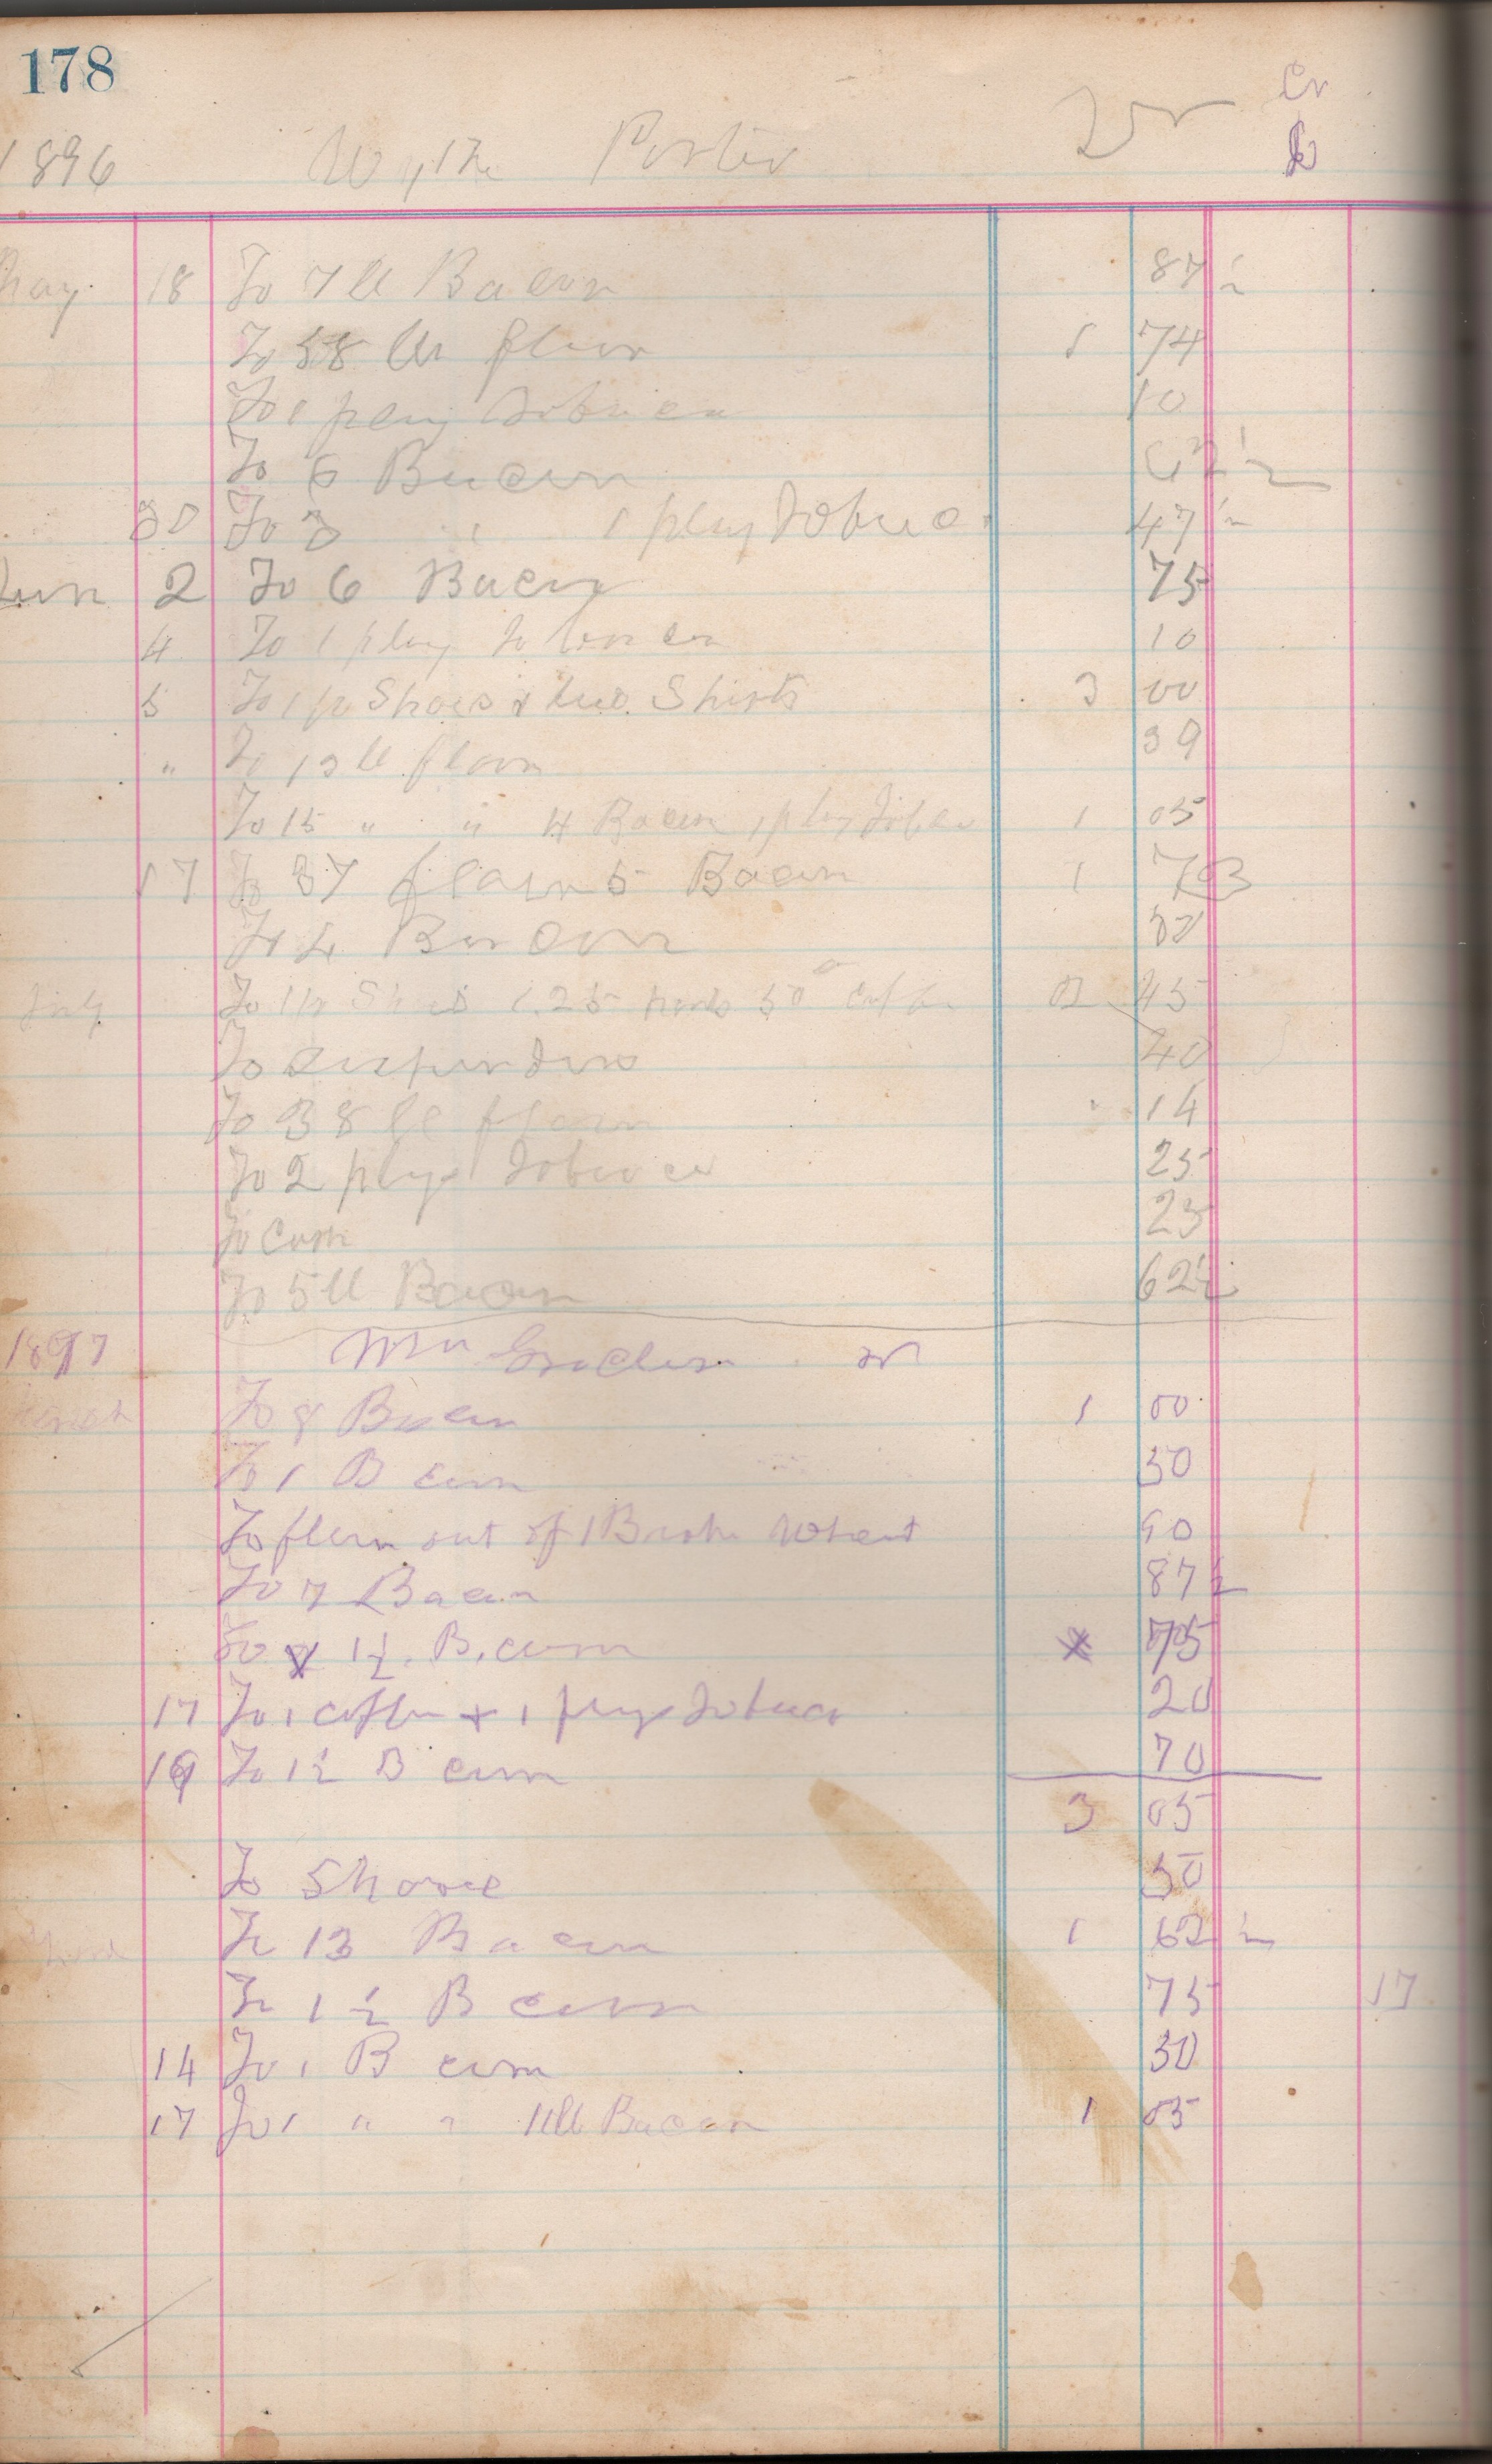 178
Cr
1896 Porter Dr
May 18 To 7 lb Bacon 87 ½
To 58 lbs flour 1 74
To 1 plug Tobacco 10
To 6 Bacon 62 ½
30 To 3 " 1 plug Tobaco 47 ½
June 2 To 6 Bacon 75
4 To 1 plug Tobacco 10
5 To 1 pr Shoes & two Shirts 3 00
" To 13 lb flour 39
To 15 " " 4 Bacon 1 plug Tobaco 1 05
17 To 37 flour 5 Bacon 1 73
To 4 Bacon
July To 1 pr Shoes 1.25 50 coffee 2 45
To suspenders 40
To 38 lb flour 1 14
To 2 plugs Tobacco 25
To Corn 25
To 5 lb Bacon 62 ½
1897 Dr
March To 8 Bacon 1 00
To 1 B corn 50
To flour out of 1 Bush Wheat 90
To 7 Bacon 87 ½
To 1½ B. corn 75
17 To 1 coffee & 1 plug Tobaco 20
19 To 1½ B corn 70
3 05
To 50
June To 13 Bacon 1 62 ½
To 1 ½ B corn 75 17
14 To 1 B corn 50
17 To 1 " " lb Bacon 1 05